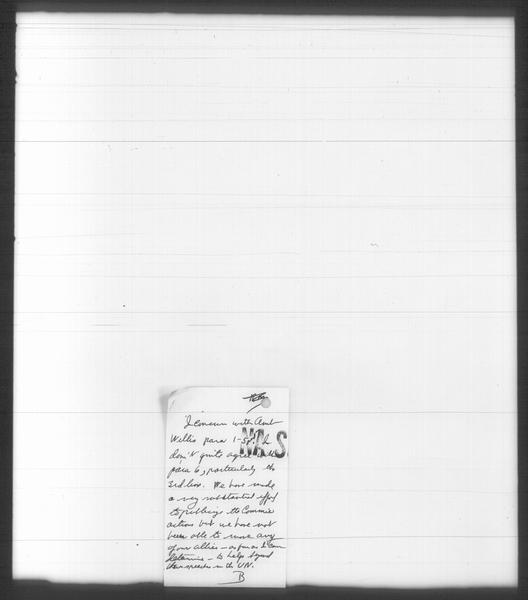 I concur with Amb
Willis para 1-5. I
don't quite agree with
para 6, particularly the
3rd line. We have made
a very substantial effort
to publicize the Commie
actions but we have not
been able to move any
of our allies – as far as I can
determine – to help beyond
their speeches in the UN.
B
NLS